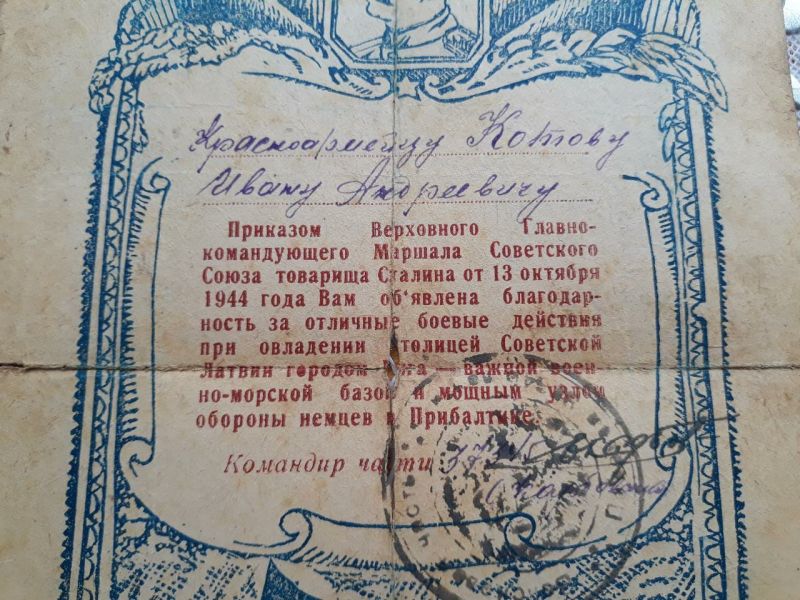 Красноармейцу Котову
Ивану Андреевичу
Приказом Верховного Главно-
командующего Маршала Советского
Союза товарища Сталина от 13 октября
1944 года Вам об‘явлена благодар-
ность за отличные боевые действия
при овладении столицей Советской
Латвии городом Рига — важной воен-
но-морской базой и мощным узлом
обороны немцев в Прибалтике.
Командир части
ЧАСТЬ